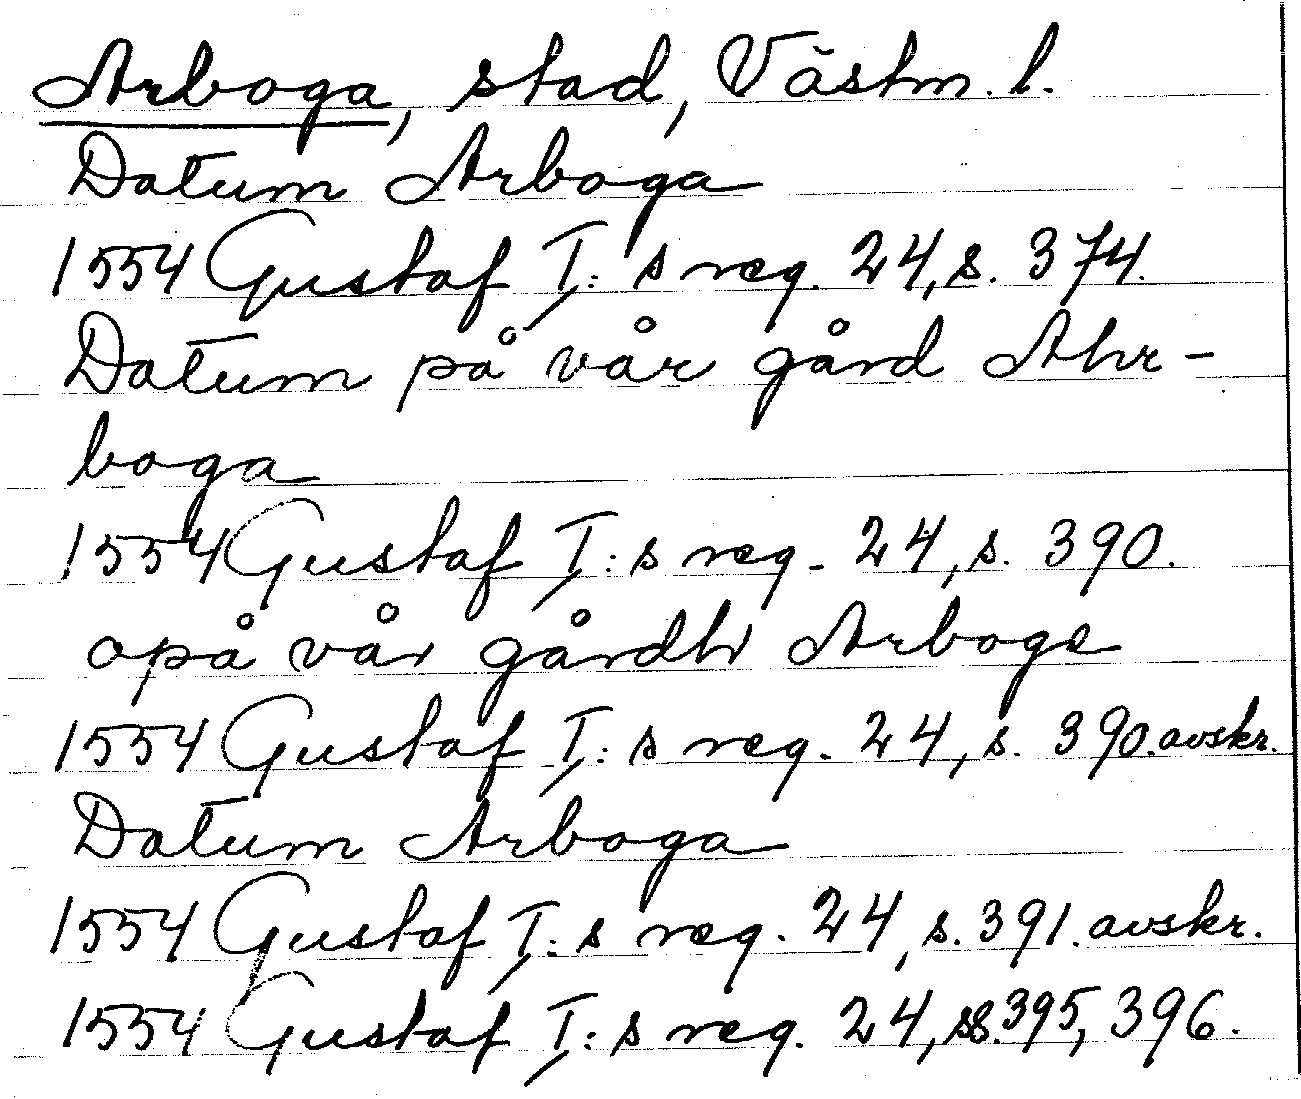 Arboga, stad, Västm. l.
Datum Arboga
1554 Gustaf I:s reg. 24, s. 374.
Datum på vår gård Ahr-
boga
1554 Gustaf I:s reg. 24, s. 390.
opå vår gårdh Arboge
1554 Gustaf I:s reg. 24, s. 390. avskr.
Datum Arboga
1554 Gustaf I:s reg. 24, s. 391. avskr.
1554 Gustaf I:s reg. 24, ss. 395, 396.